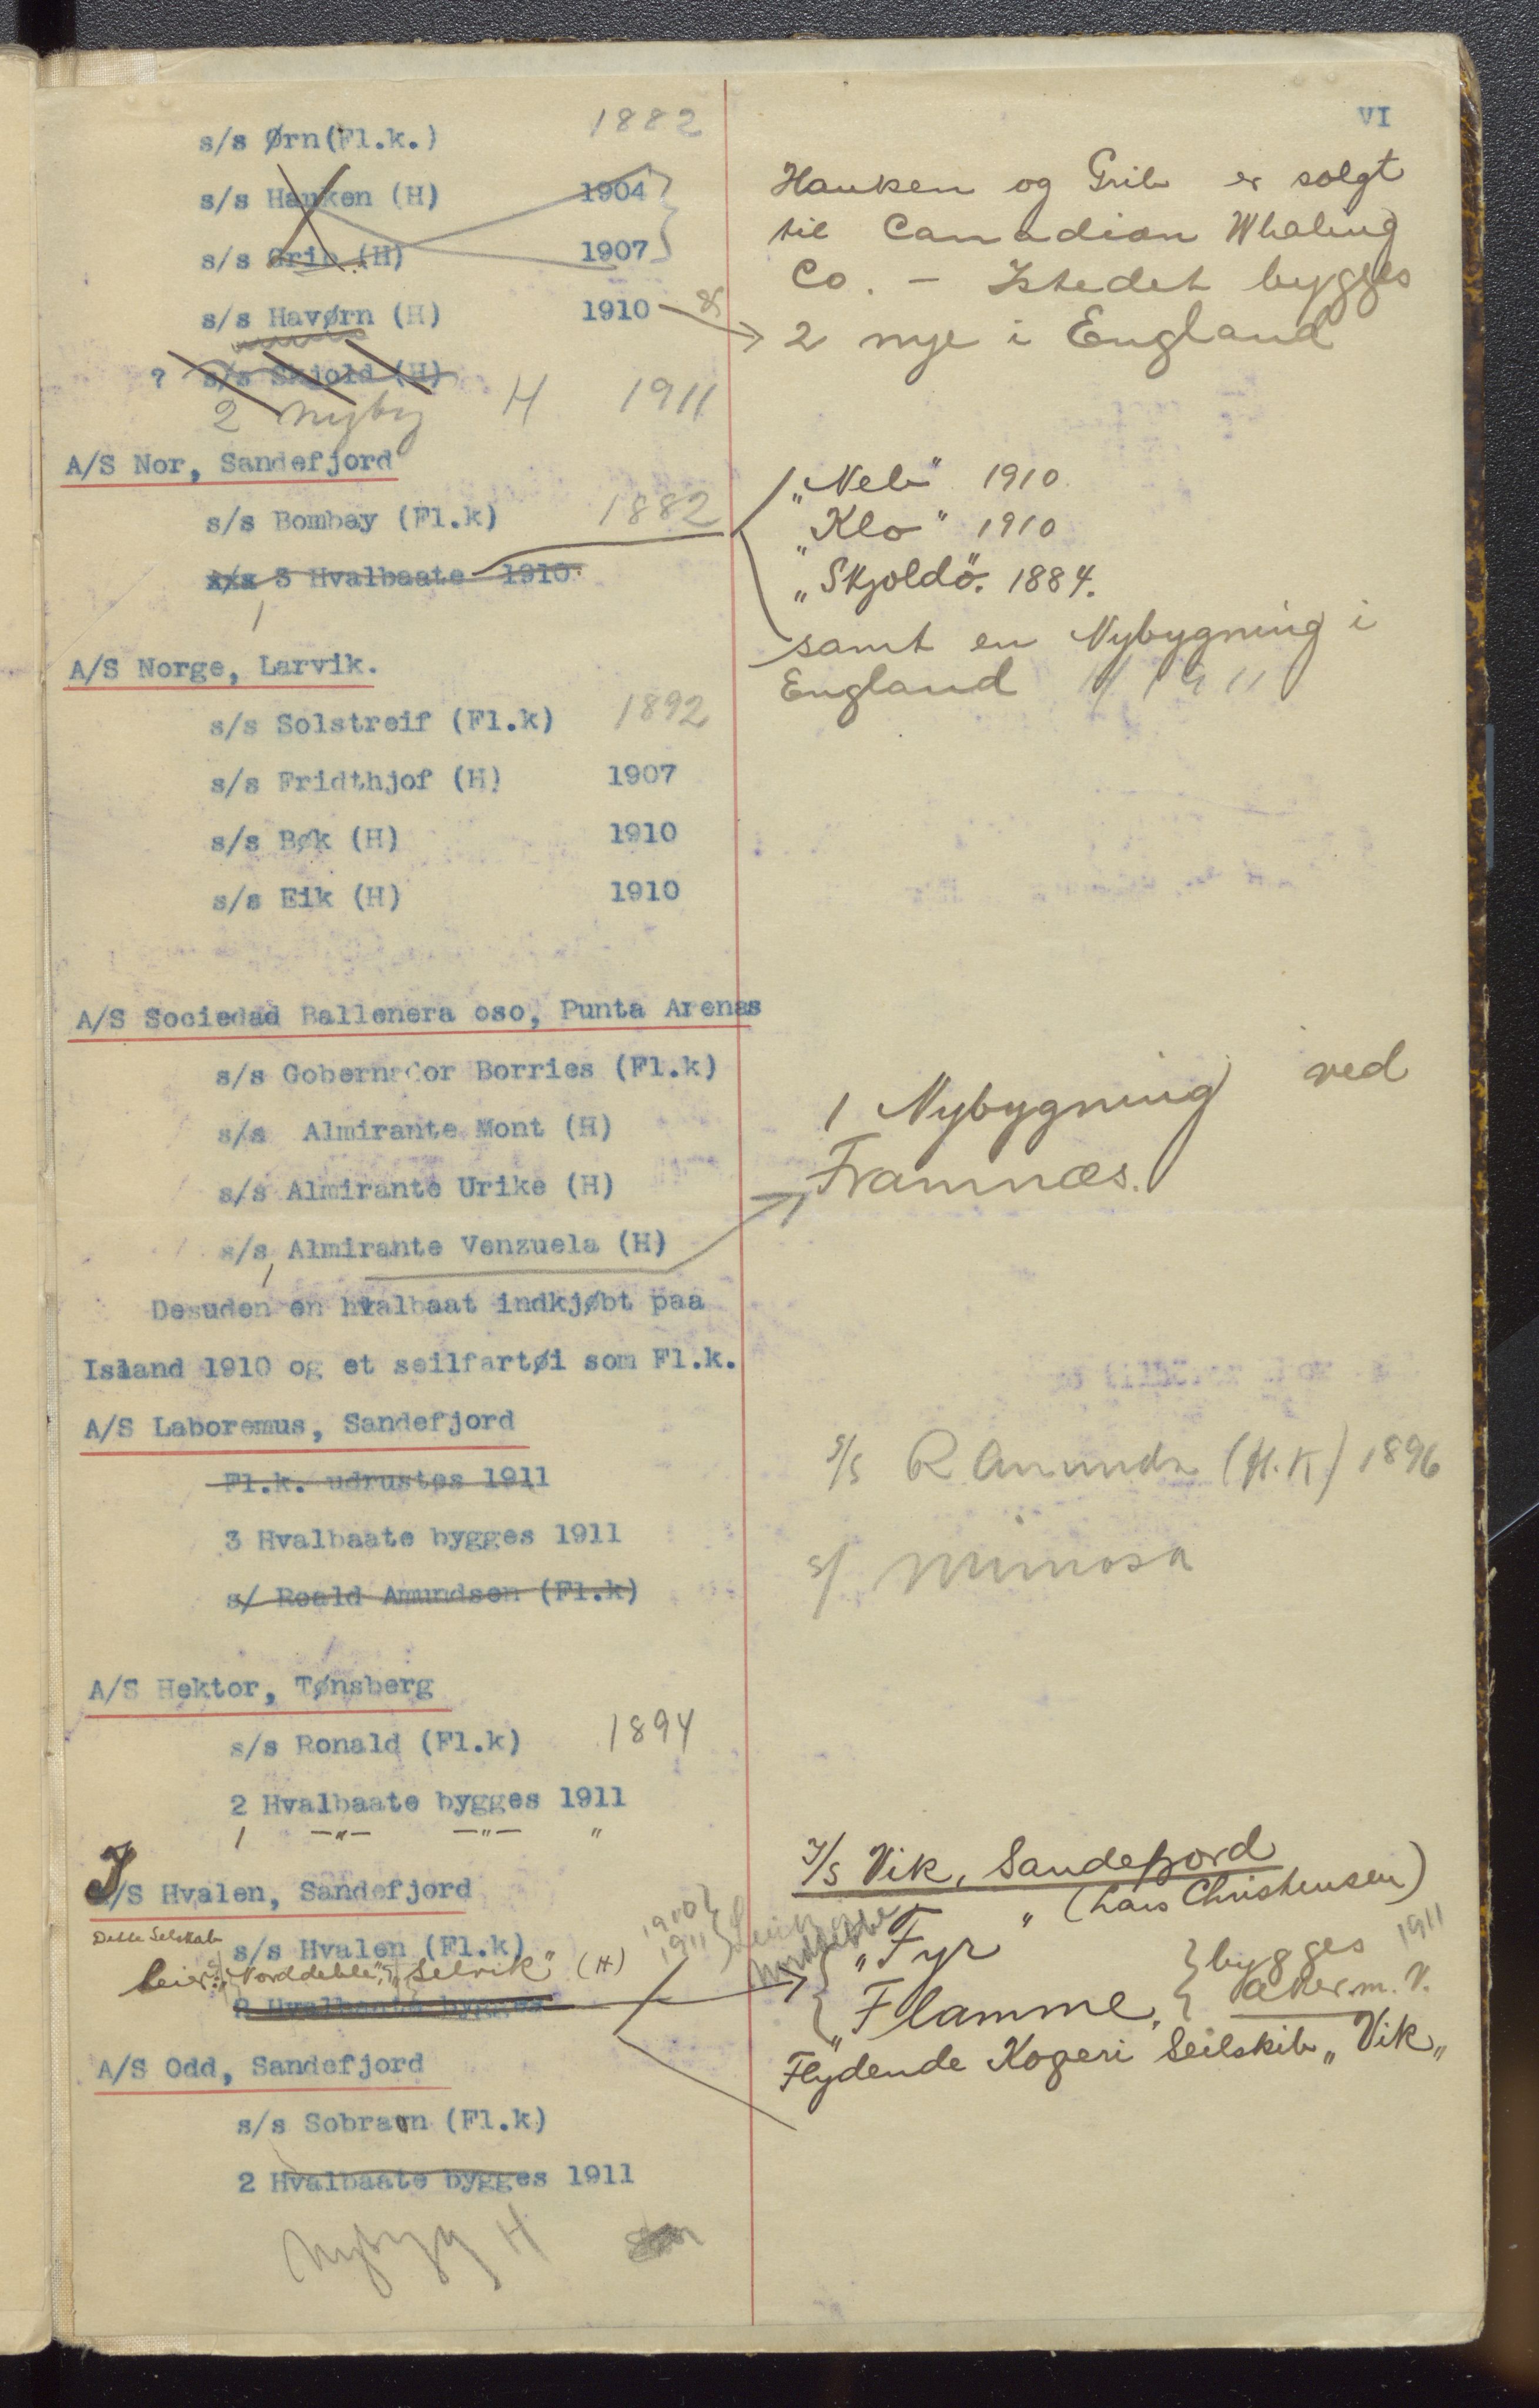 VI
s/s Ørn(Fl.k.) 1882
s/s Hauken (H) 1904
s/s Grib (H) 1907
s/s Havørn (H) 1910
? s/s Skjold (H)
2 Nybyg H 1911
Hauken og Grib er solgt
til Canadian Whaling
Co. - Istedet bygges
2 nye i England
A/S Nor, Sandefjord
s/s Bombay (Fl.k) 1882
3 Hvalbaate 1910.
1
„Neb" 1910
„Klo" 1910
„Skjoldö". 1884.
samt en Nybygning i
England H 1911
A/S Norge, Larvik.
s/s Solstreif (Fl.k) 1892
s/s Fridthjof (H) 1907
s/s Bøk (H) 1910
s/s Eik (H) 1910
A/S Sociedad Ballenera oso, Punta Arenas
s/s Gobernador Borries (Fl.k)
s/s Almirante Mont (H)
s/s Almirante Urike (H)
s/s Almirante Venzuela (H)
1
1 Nybygning ved
Framnæs.
Desuden en hvalbaat indkjøbt paa
Island 1910 og et seilfartøi som Fl.k.
A/S Laboremus, Sandefjord
Fl.k. udrustes 1911
3 Hvalbaate bygges 1911
s/ Roald Amundsen (Fl.k)
s/s R Amunds 1896
s/ Mimosa
A/S Hektor, Tønsberg
s/s Ronald (Fl.k) 1894
2 Hvalbaate bygges 1911
1 -"- -"- "
I/S Hvalen, Sandefjord
Dette Selskab
s/s Hvalen (Fl.k)
leier „Norddeble", „Selvik" (H)
2 Hvalbaate bygges
1910
1911
I/S Vik, Sandefjord
" (Lars Christensen)
„Fyr
„Flamme
bygges 1911
Aker m. V.
Flydende Kogeri Seilskib „Vik„
A/S Odd, Sandefjord
s/s Sobraon (Fl.k)
2 Hvalbaate bygges 1911
Nybyg H